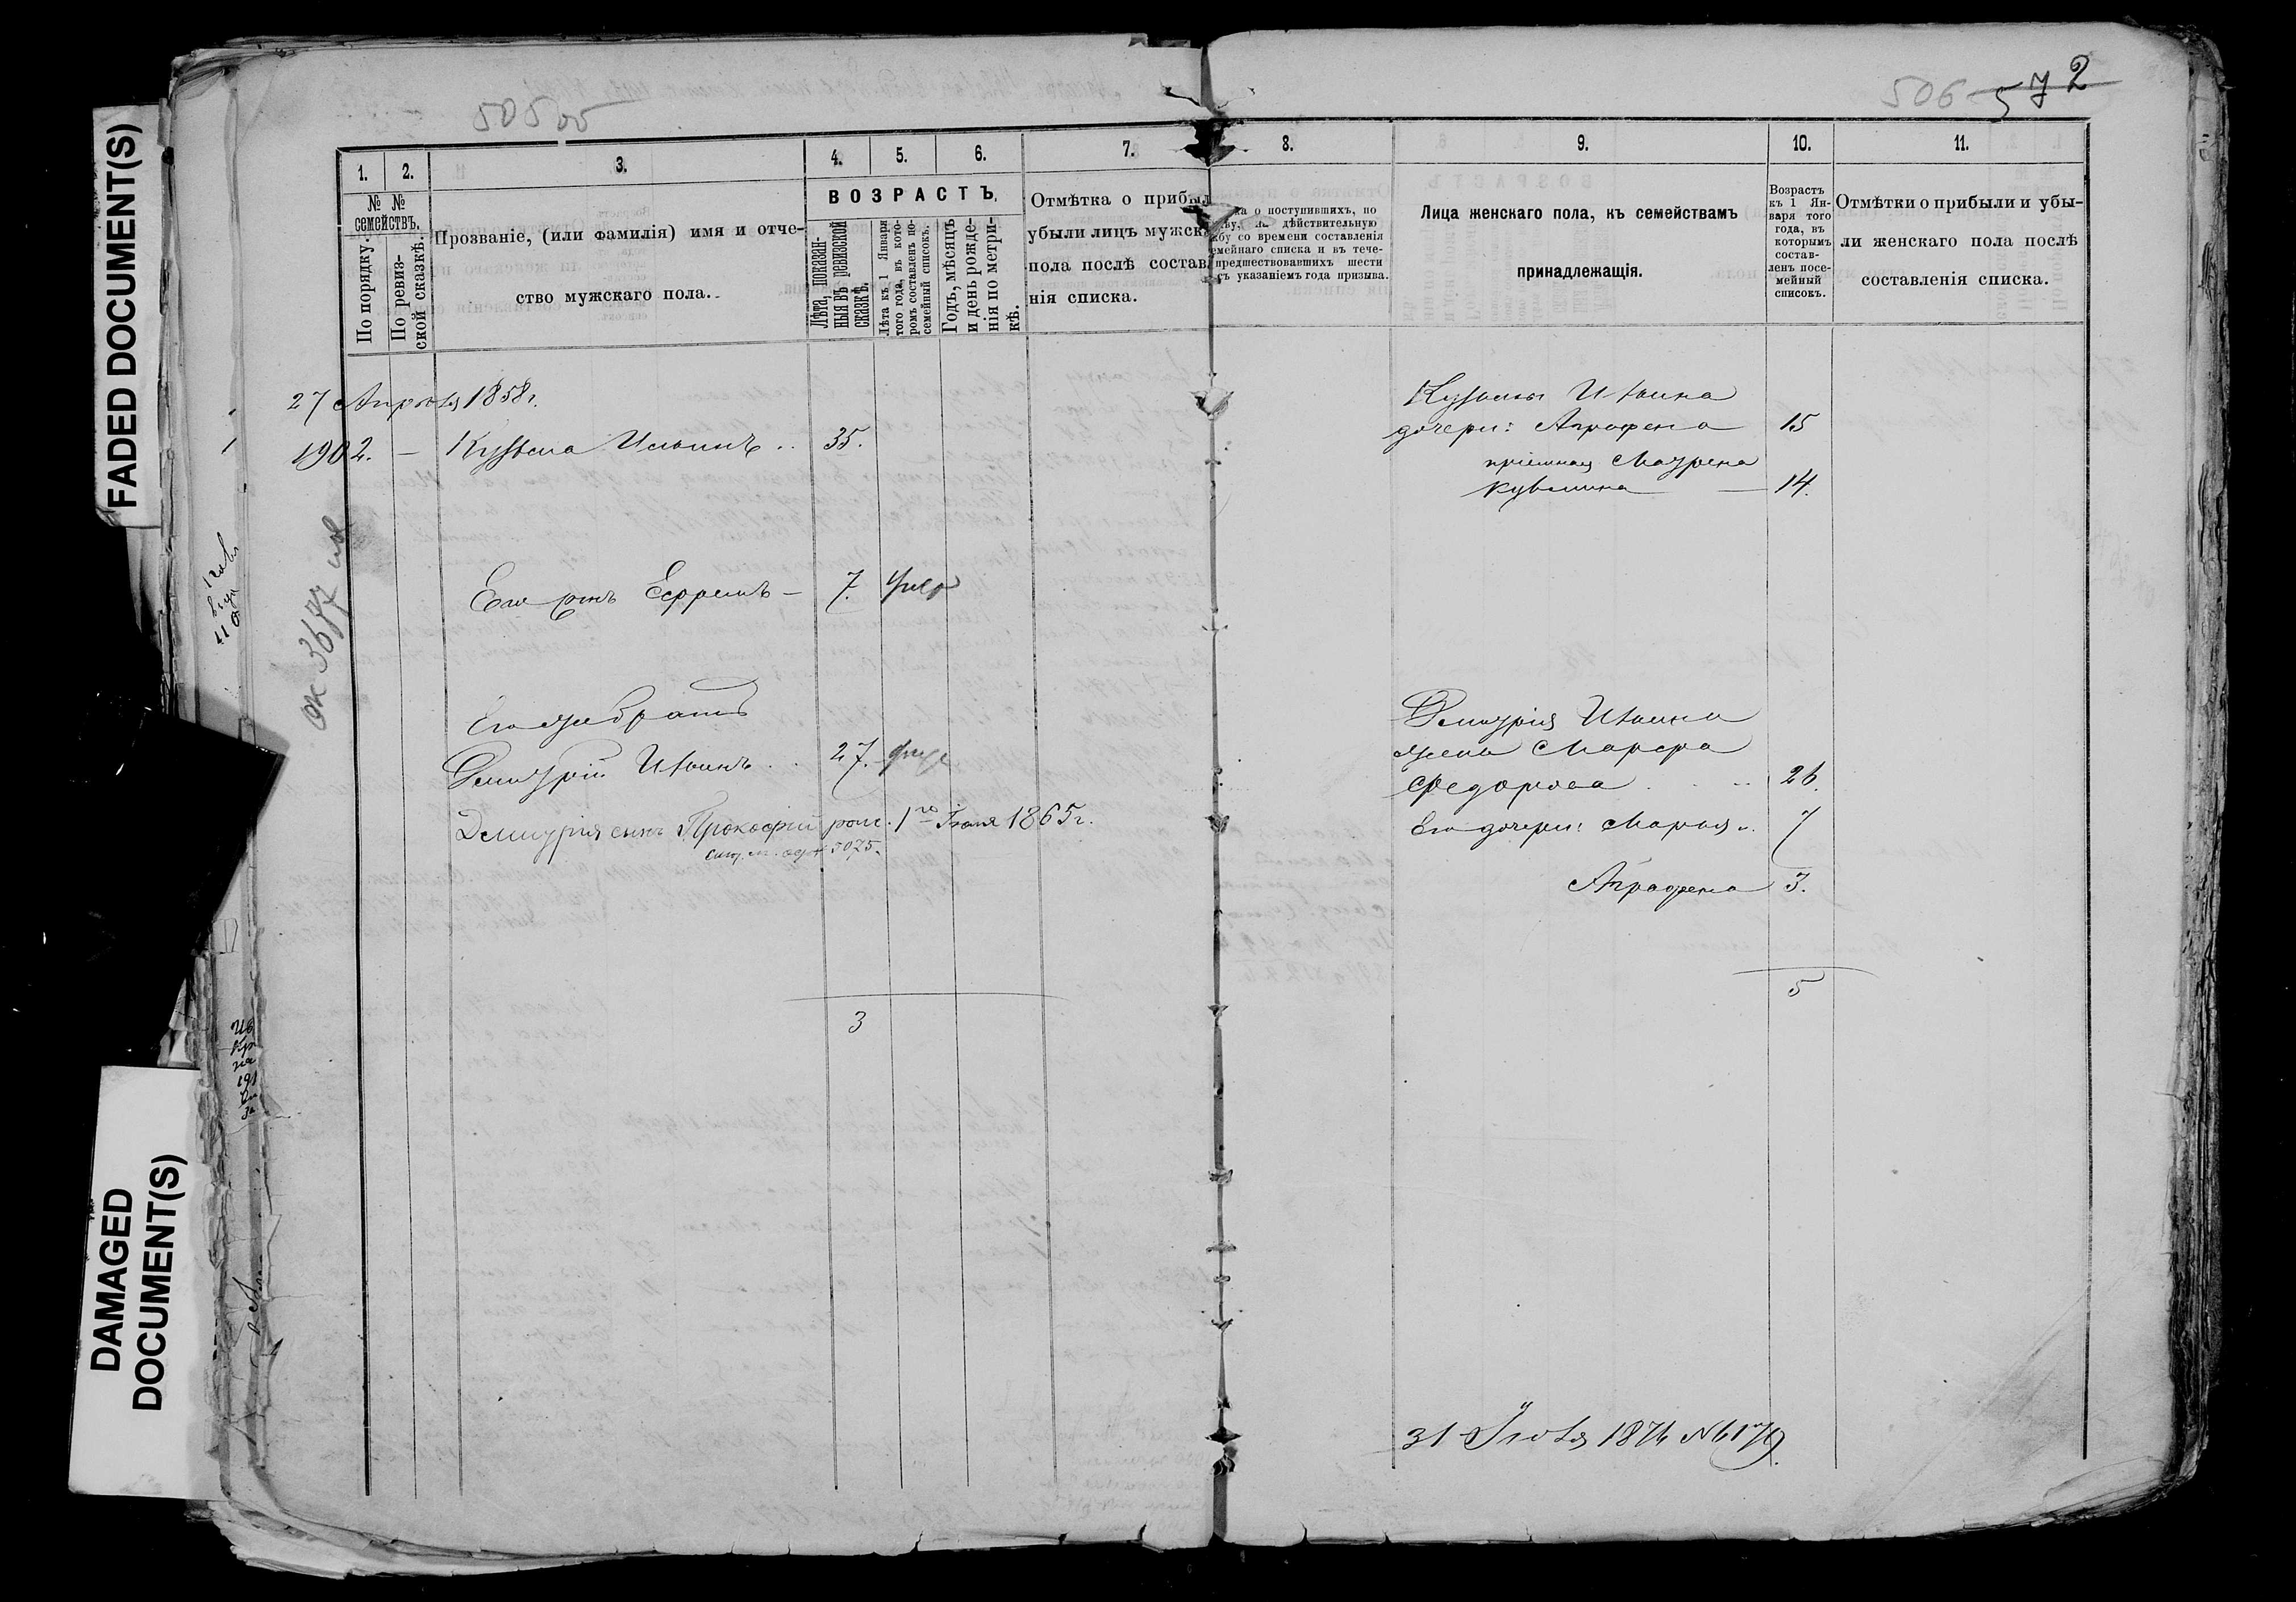 FADED DOCUMENT(S)
DAMAGED
DOCUMENT(S)
505об
1.
2.
3.
4.
5.
6.
7.
№ №
семействъ.
По порядку.
По ревиз-
ской сказкѣ.
Прозваніе, (или фамилія) имя и отче-
ство мужскаго пола.
ВОЗРАСТЪ.
Лѣта, показан-
ныя въ ревизской
сказкѣ.
Лѣта къ 1 Января
того года, въ кото-
ромъ составленъ по-
семейный списокъ.
Годъ, мѣсяцъ
и день рожде-
нія по метри-
кѣ.
Отмѣтка о прибыл
убыли лицъ мужск
пола послѣ состав
нія списка.
27 Апрѣля 1858г.
1902. — Кузьма Ильинъ .. 35.
ок 3677
Его сынъ Ефремъ — 7.
Его же братъ
Дмитрій Ильинъ . . 27.
Дмитрія сынъ Прокофій род. 1го Іюля 1865г.
5075.
3
506 572
8.
9.
10.
11.
ка о поступившихъ, по
ву, на дѣйствительную
жбу со времени составленія
емейнаго списка и въ тече-
предшествовавшихъ шести
съ указаніемъ года призыва.
Лица женскаго пола, къ семействамъ
принадлежащія.
Возрастъ
къ 1 Ян-
варя того
года, въ
которымъ
состав-
ленъ посе-
мейный
списокъ.
Отмѣтки о прибыли и убы-
ли женскаго пола послѣ
составленія списка.
Кузьмы Ильина
дочери: Аграфена 15
пріемная Маурена
Кузьмина — 14.
Дмитрія Ильина
жена Марфа
Федорова . . .. 26.
Его дочери: Марья .. 7
Аграфена 3.
5
31 Іюля 1874 № 6179.